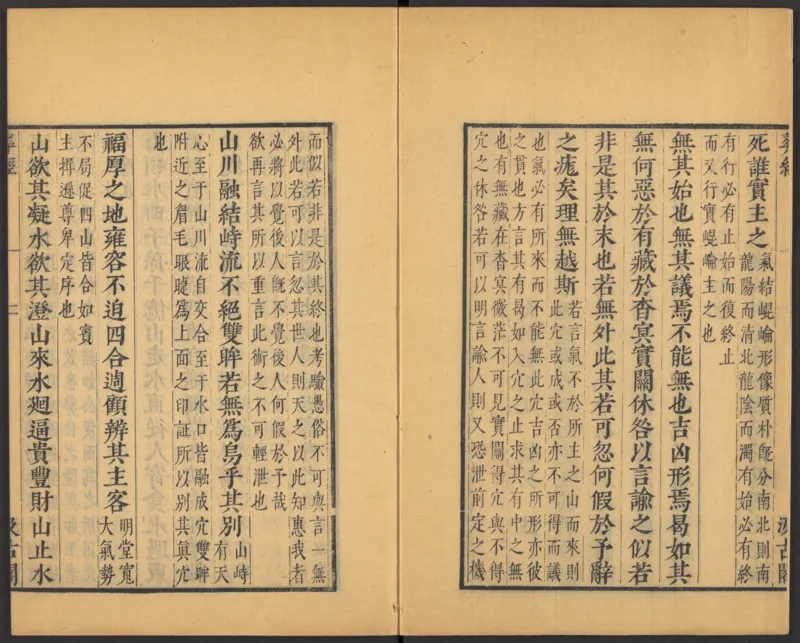 葬經
汲古閣
死誰實主之
氣結崐崘形像質朴旣分南北則南
龍陽而清北龍陰而濁有始必有終
有行必有止始而復終止
而又行實崐崘主之也
無其始也無其議焉不能無也吉凶形焉曷如其
無何惡於有藏於杳冥實關休咎以言諭之似若
非是其於末也若無外此其若可忽何假於予辭
之庬矣理無越斯
若言氣不於所主之山而來則
此宂或成或否亦不可得而議
也氣必有所來而不能無此宂吉凶之所形亦彼
之貫也方言其有曷如入宂之止求其有中之無
也有無藏在杳冥微茫不可見實關得宂與不得
宂之休咎若可以明言諭人則又恐泄前定之機
而似若非是於其終也考喻愚俗不可與言一無
外此若可以言忽其世人則天之以此知惠我者
必將以覺後人旣不覺後人何假於予哉
欲再言其所以重言此術之不可輕泄也
山川融結峙流不絕雙眸若無爲烏乎其別
山峙
有天
心至于山川流自交合至于水口皆融成宂雙眸
附近之眉毛眼睫爲上面之印証所以別其眞宂
也
福厚之地雍容不迫四合週顧辨其主客
明堂寬
大氣勢
不局促四山皆合如賓
主揖遜尊卑定序也
山欲其凝水欲其澄山來水廻逼貴豐財山止水
葬經
二
汲古閣